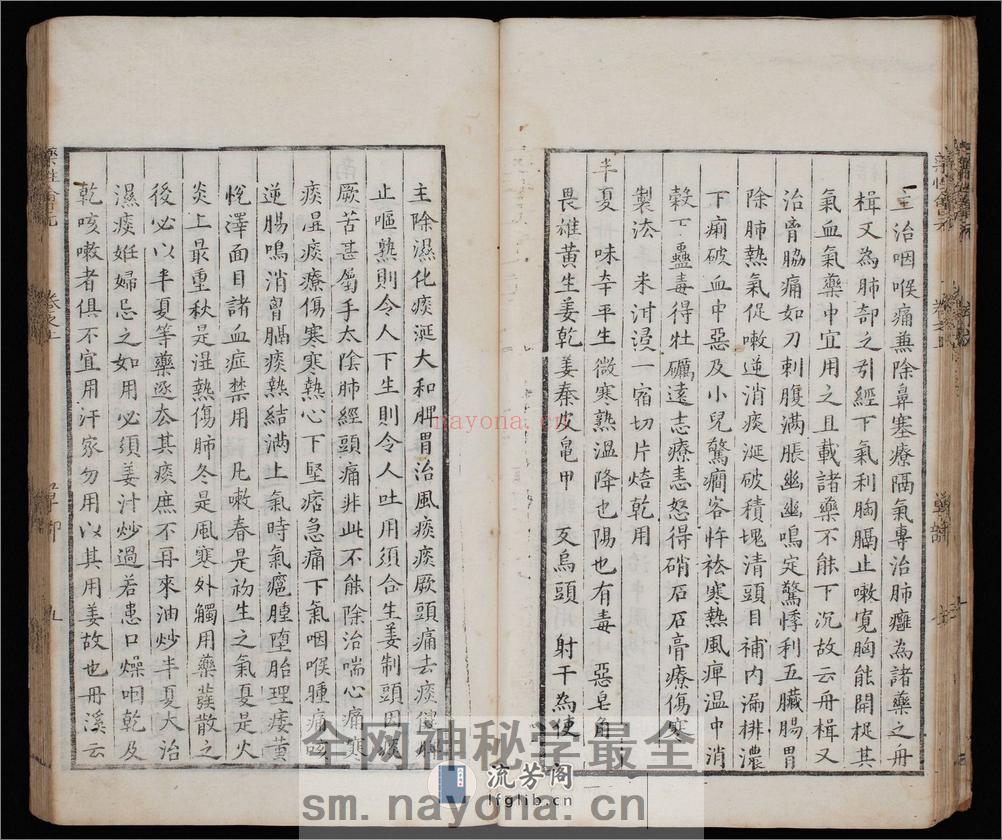 主治咽喉痛兼除鼻塞療隔氣專治肺癰為諸藥之舟
楫又為肺部之引經下氣利胸膈止嗽寬胸能開提其
氣血氣藥中宜用之且載諸藥不能下沉故云舟楫又
治脅脇痛如刀刺腹滿脹幽幽鳴定驚悸利五臟腸胃
除肺熱氣促嗽逆消痰涎破積塊清頭目補內漏排濃
下痢破血中惡及小兒驚癇客忤祛寒熱風痺温中消
穀下蠱毒得牡礪遠志療恚怒得硝石石膏療傷寒
製法 米泔浸一宿切片焙乾用
半夏 味辛平生微寒熟溫降也陽也有毒 惡皂角
畏雄黃生姜乾姜秦皮龜甲 反烏頭 射干為使
主除濕化痰涎大和脾胃治風痰痰厥頭痛去痰
止嘔熟則令人下生則令人吐用須合生姜制頭因痰
厥苦甚屬手太陰肺經頭痛非此不能除治喘心痛寒
痰昆痰療傷寒寒熱心下堅痞急痛下氣咽喉腫痛咳
逆腸鳴消胷膈痰熱結滿上氣時氣瘧腫墮胎理痿黃
悅澤面目諸血症禁用 凡嗽春是初生之氣夏是火
炎上最重秋是湿熱傷肺冬是風寒外觸用藥發散之
後必以半夏等藥逐去其痰庶不再來油炒半夏大治
濕痰妊婦忌之如用必須姜汁炒過若患口燥咽乾及
乾咳嗽者俱不宜用汗家勿用以其用姜故也丹溪云
藥性會元
卷之上
草部
九
nayona.cn
全网神秘学最全
流芳阁
lfglib.cn
sm.nayona.cn